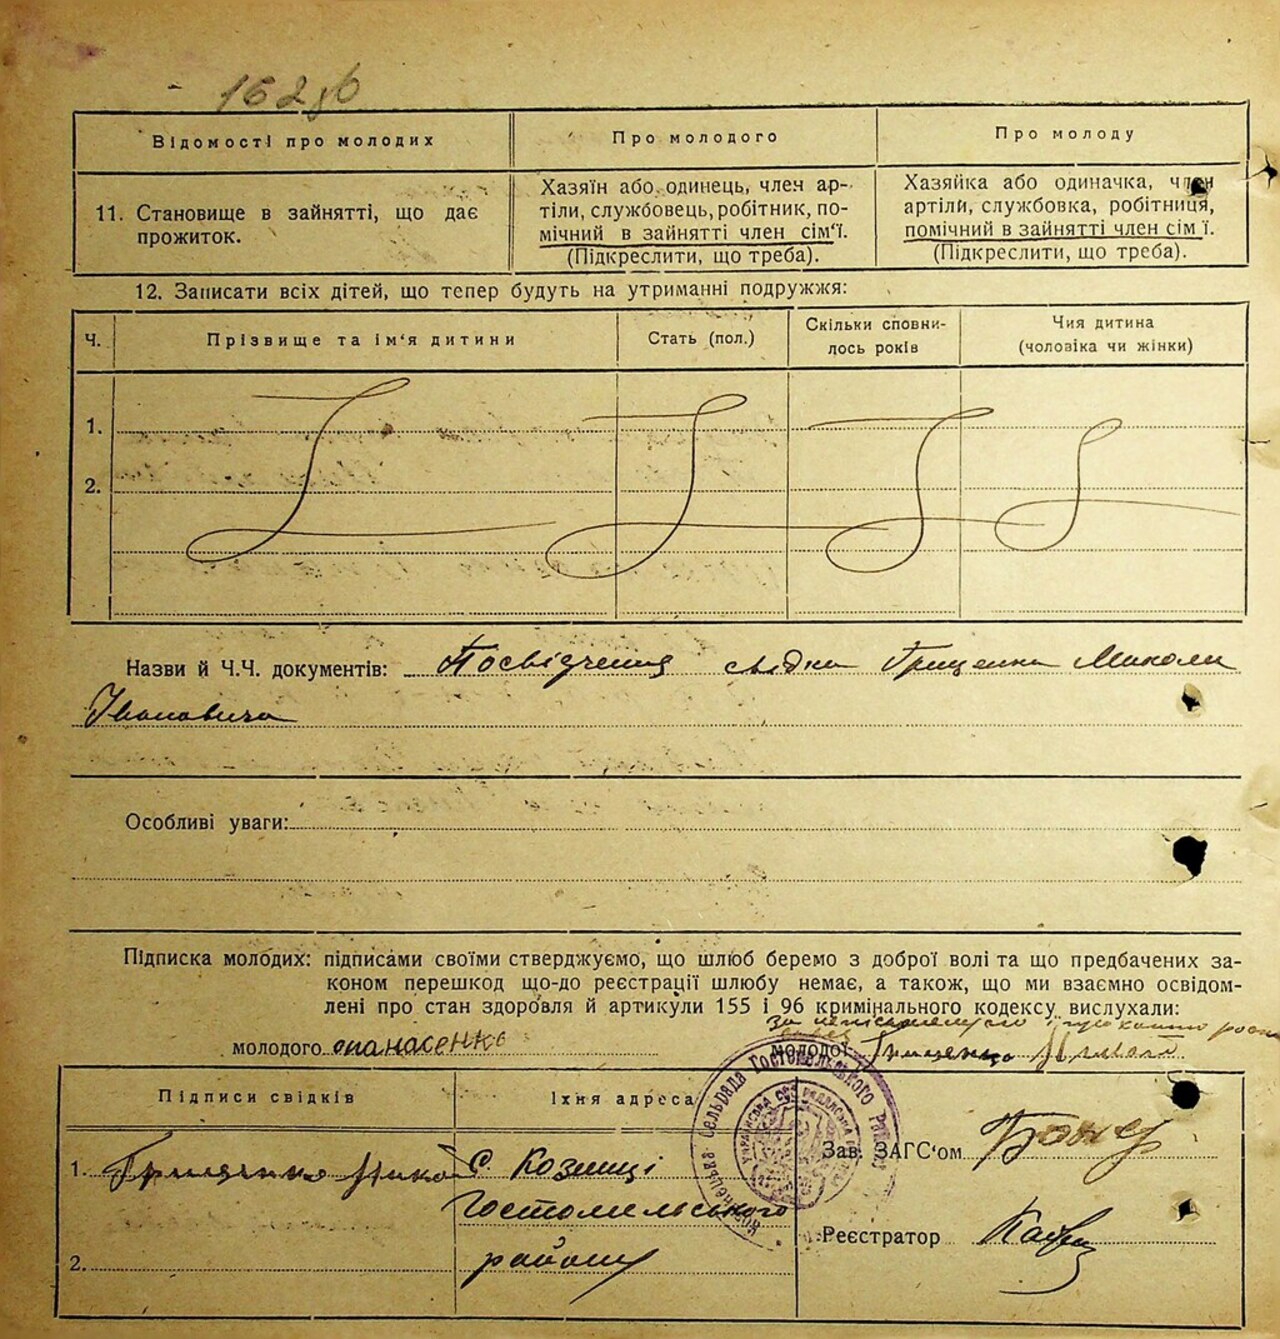 162 зб
Відомості про молодих
Про молодого
Про молоду
11. Становище в зайнятті, що дає
прожиток.
Хазяїн або одинець, член ар-
тіли, службовець, робітник, по-
мічний в зайнятті член сім'ї.
(Підкреслити, що треба).
Хазяйка або одиначка, член
артіли, службовка, робітниця,
помічний в зайнятті член сім ї.
(Підкреслити, що треба).
12. Записати всіх дітей, що тепер будуть на утриманні подружжя:
Ч.
Прізвище та ім'я дитини
Стать (пол.)
Скільки сповни-
лось років
Чия дитина
(чоловіка чи жінки)
1.
2.
Назви й Ч.Ч. документів: Посвідчення свідка Грищенка Миколи
Івановича
Особливі уваги:
Підписка молодих: підписами своїми стверджуємо, що шлюб беремо з доброї волі та що предбачених за-
коном перешкод що-до реєстрації шлюбу немає, а також, що ми взаємно освідом-
лені про стан здоров'я й артикули 155 і 96 кримінального кодексу вислухали:
молодого опанасенко
молодої Грищенко
Підписи свідків
Їхня адреса
1. Грищенко Мико
с. Козинці
Гостомельського
району
2.
Зав. ЗАГС'ом
Реєстратор
Сельрада Гостомельського